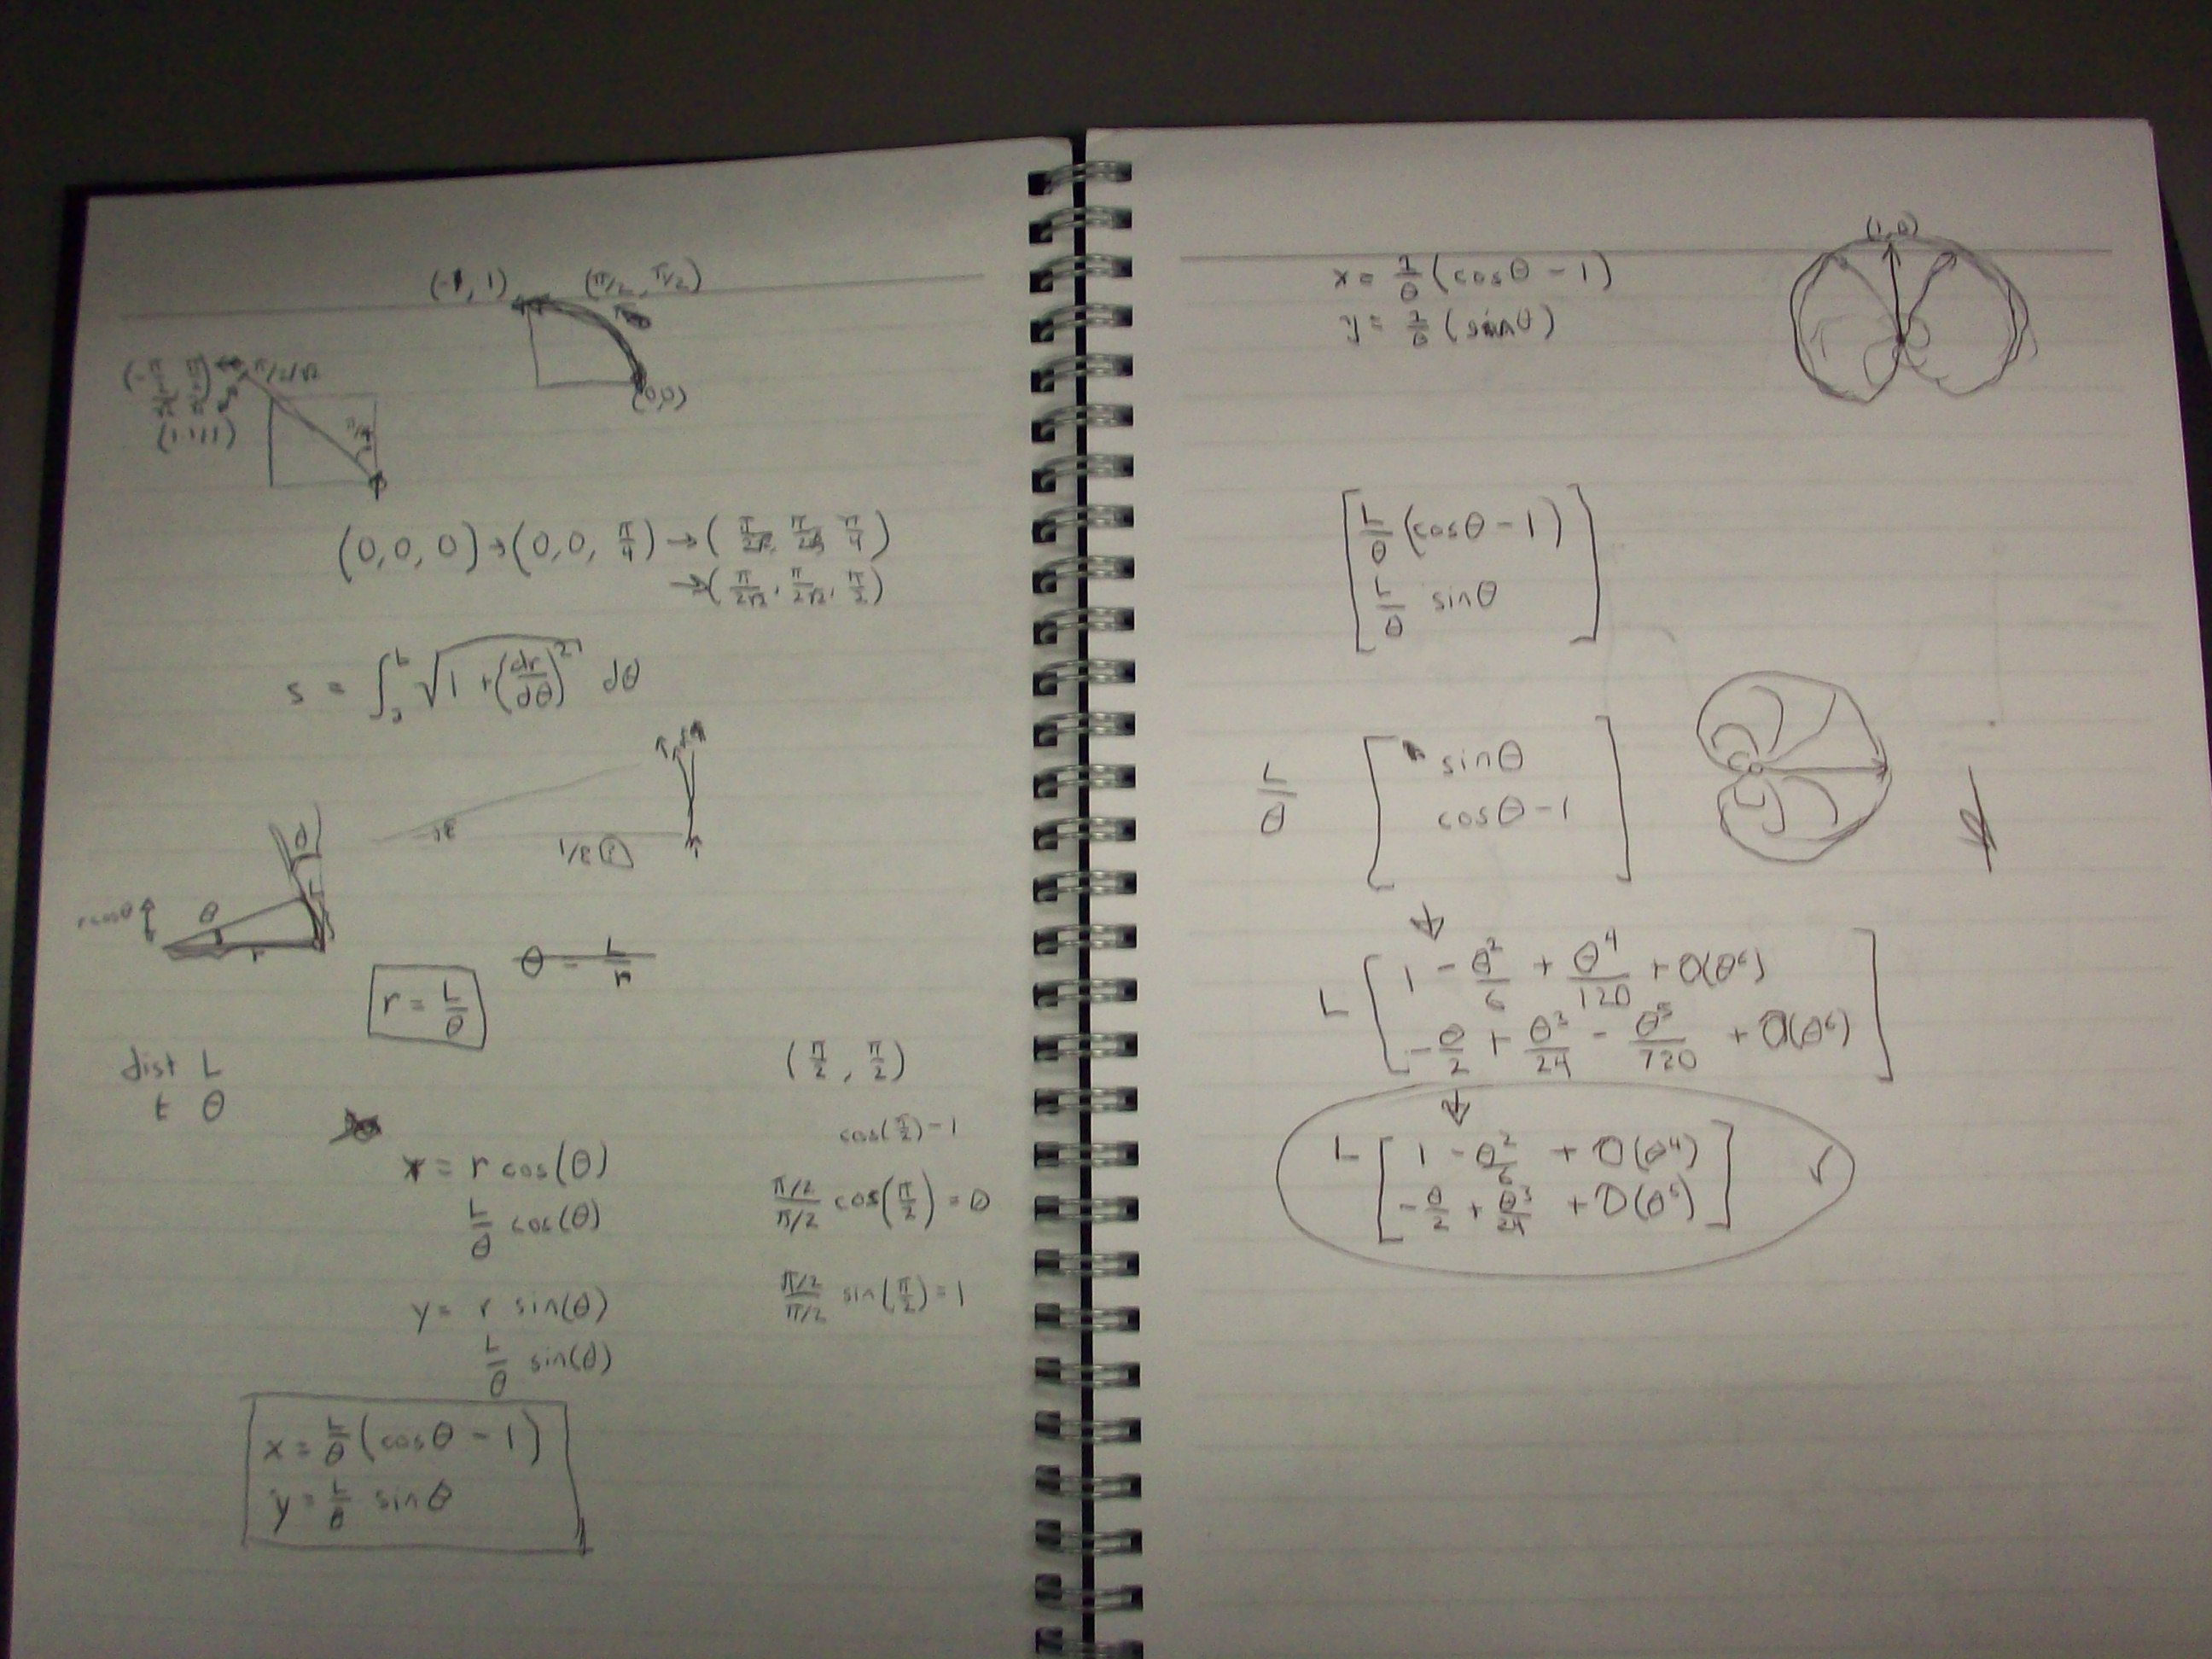 (-1, 1) (π/2, π/2)
(0,0)
π/2/√2
π/4
(0,0,0)→(0,0,π/4)→(π/2√2, π/2√2, π/4)
→(π/2√2, π/2√2, π/2)
s = ∫ √(1+(dr/dθ)²) dθ
θ
r cos θ
r
r = L/θ
θ = L/r
dist L
t θ
(π/2, π/2)
cos(π/2)-1
x = r cos(θ)
L/θ cos(θ)
(π/2)/(π/2) cos(π/2) = 0
y = r sin(θ)
L/θ sin(θ)
(π/2)/(π/2) sin(π/2) = 1
x = L/θ (cosθ - 1)
y = L/θ sinθ
x = 1/θ (cosθ - 1)
y = 1/θ (sinθ)
(1,0)
[L/θ (cosθ - 1)
L/θ sinθ]
L/θ [sinθ
cosθ - 1]
↓
L [1 - θ²/6 + θ⁴/120 + O(θ⁶)
-θ/2 + θ³/24 - θ⁵/720 + O(θ⁶)]
↓
L [1 - θ²/6 + O(θ⁴)
-θ/2 + θ³/24 + O(θ⁵)]